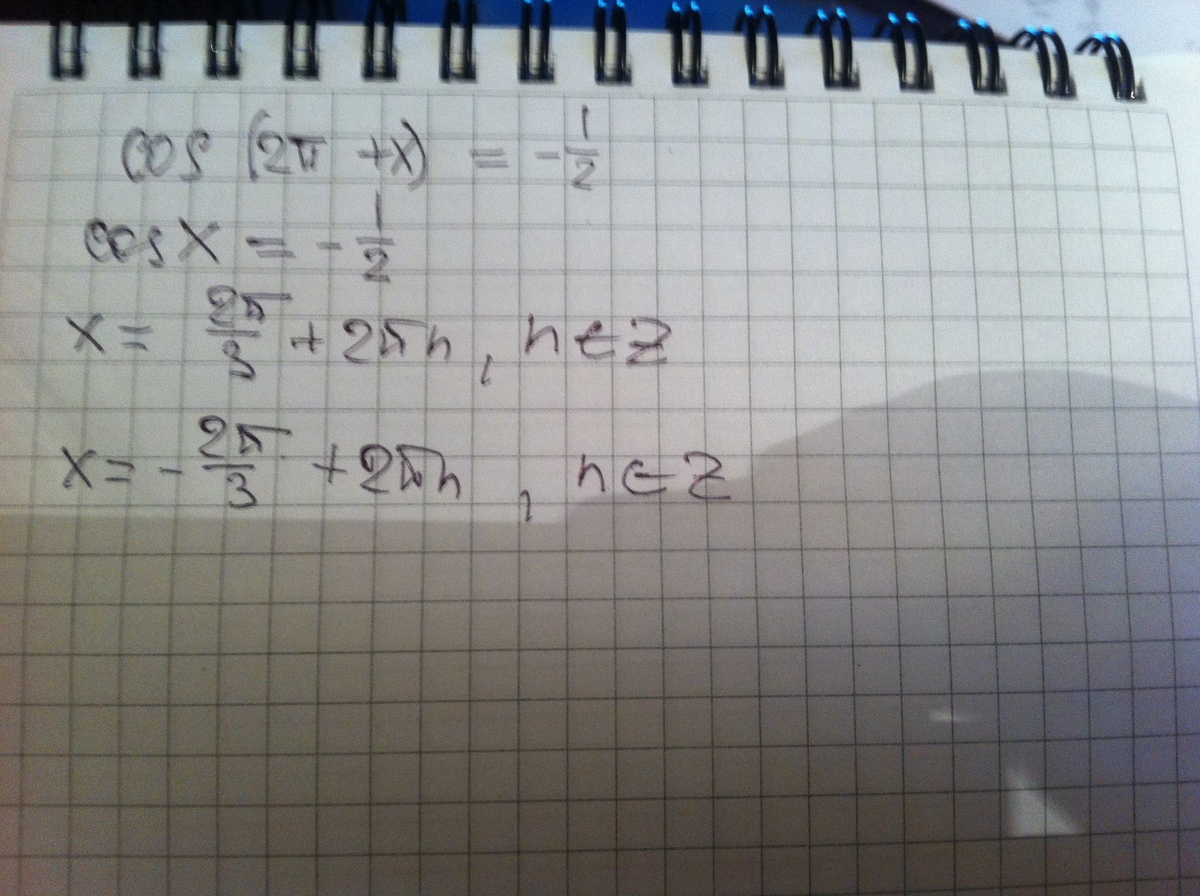 cos (2π + x) = -1/2
cos x = -1/2
x = 2π/3 + 2πn, n ∈ Z
x = -2π/3 + 2πn, n ∈ Z